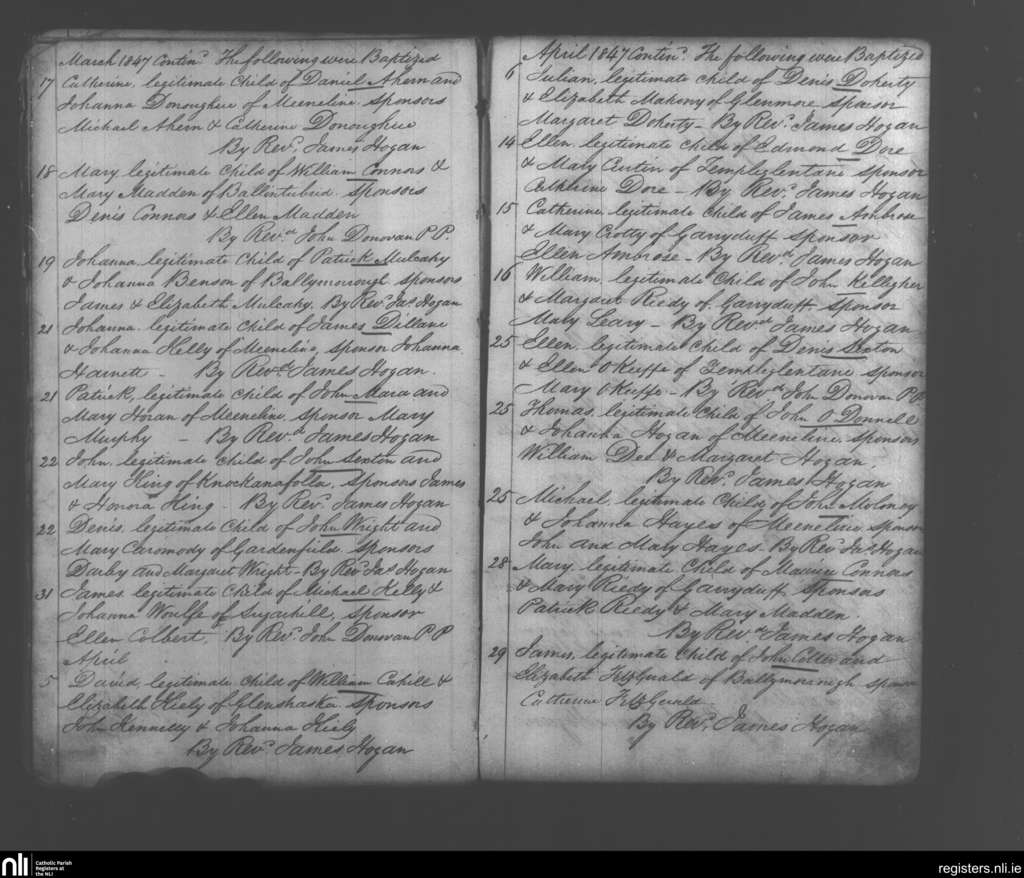 March 1847 Contin.d The following were Baptized
17 Catherine, legitimate Child of Daniel Ahern and
Johanna Donoughue of Meeneline, sponsors
Michael Ahern & Catherine Donoughue
By Rev.d James Hogan
18 Mary, legitimate Child of William Connors &
Mary Madden of Ballintubrid, sponsors
Denis Connors & Ellen Madden
By Rev.d John Donovan P.P.
19 Johanna, legitimate Child of Patrick Mulcahy
& Johanna Benson of Ballymorough, sponsors
James & Elizabeth Mulcahy. By Rev.d Ja.s Hogan
21 Johanna, legitimate child of James Dillane
& Johanna Kelly of Meeneline, sponsor Johanna
Harnett - By Rev.d James Hogan.
21 Patrick, legitimate child of John Mara and
Mary Horan of Meeneline, sponsor Mary
Murphy - By Rev.d James Hogan
22 John, legitimate Child of John Sexton and
Mary King of Knockanafolla, sponsors James
& Honora King - By Rev.d James Hogan
22 Denis, legitimate Child of John Wright and
Mary Caromody of Gardenfield, sponsors
Darby and Margaret Wright - By Rev.d Ja.s Hogan
31 James, legitimate Child of Michael Kelly &
Johanna Woulfe of Sugarhill, sponsor
Ellen Colbert, By Rev.d John Donovan P.P
April
5 David, legitimate child of William Cahill &
Elizabeth Kiely of Glenshaska, sponsors
John Kennelly & Johanna Kiely
By Rev.d James Hogan
April 1847 Contin.d The following were Baptized
6 Julian, legitimate child of Denis Doherty
& Elizabeth Mahony of Glenmore, sponsor
Margaret Doherty - By Rev.d James Hogan
14 Ellen, legitimate child of Edmond Dore
& Mary Curtin of Templeglentane sponsor
Catherine Dore - By Rev.d James Hogan
15 Catherine, legitimate child of James Ambrose
& Mary Crotty of Garryduff sponsor
Ellen Ambrose - By Rev.d James Hogan
16 William, legitimate Child of John Kellegher
& Margaret Riedy of Garryduff, sponsor
Mary Leary - By Rev.d James Hogan
25 Ellen, legitimate child of Denis Sexton
& Ellen OKeeffe of Templeglentane sponsor
Mary OKeeffe - By Rev.d John Donovan P.P.
25 Thomas, legitimate Child of John O Donnell
& Johanna Hogan of Meeneline, sponsors
William Dee & Margaret Hogan,
By Rev.d James Hogan
25 Michael, legitimate Child of John Molony
& Johanna Hayes of Meeneline, sponsors
John and Mary Hayes - By Rev.d Ja.s Hogan
28 Mary, legitimate Child of Maurice Connors
& Mary Riedy of Garryduff, sponsors
Patrick Riedy & Mary Madden
By Rev.d James Hogan
29 James, legitimate Child of John Colter and
Elizabeth FitzGerald of Ballymorough sponsor
Catherine FitzGerald
By Rev.d James Hogan
nli Catholic Parish
Registers at
the NLI
registers.nli.ie